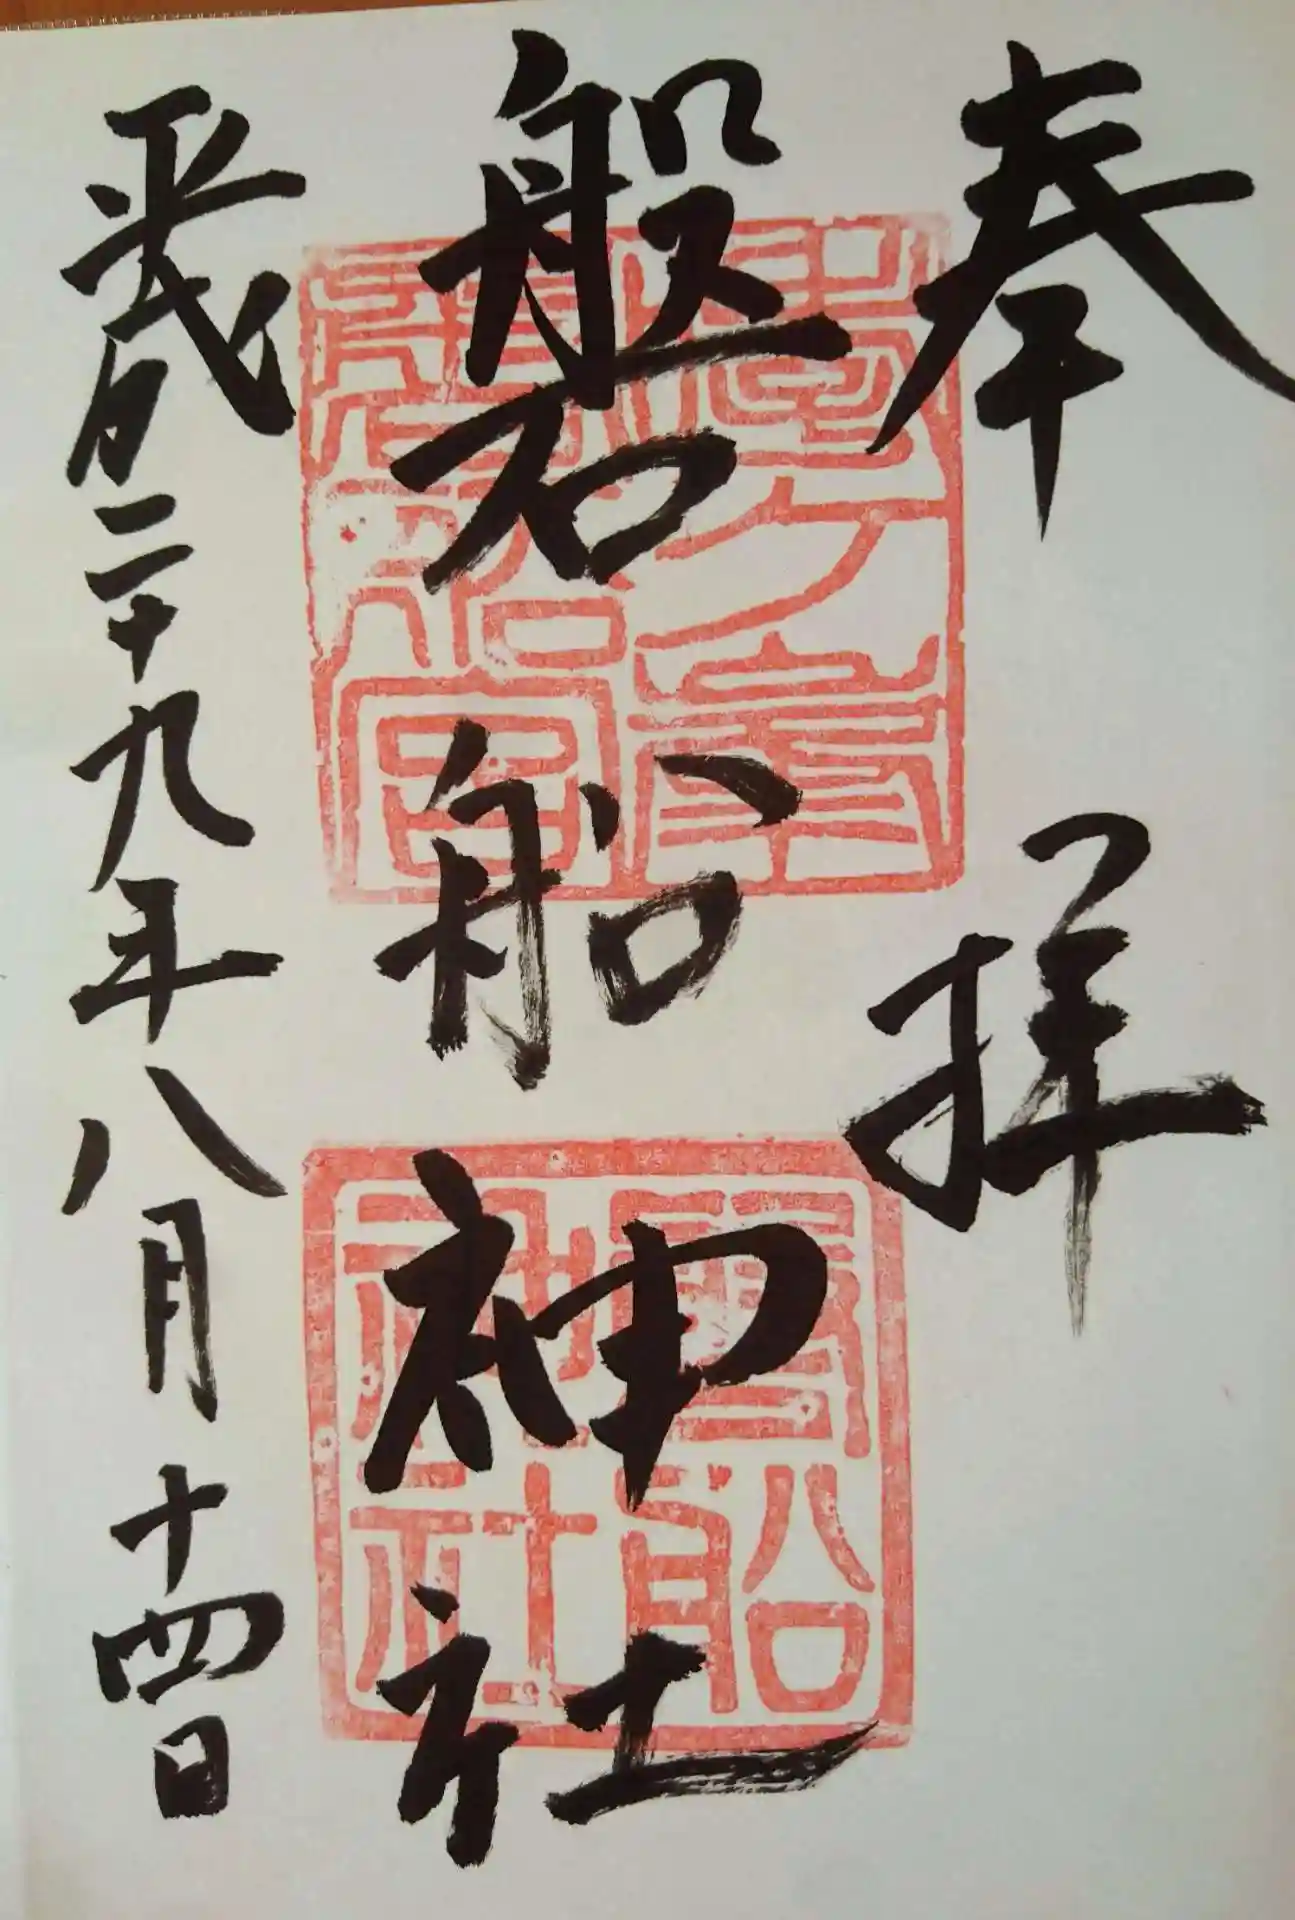 奉拝
磐船神社
平成二十九年八月十四日
磐船
神社